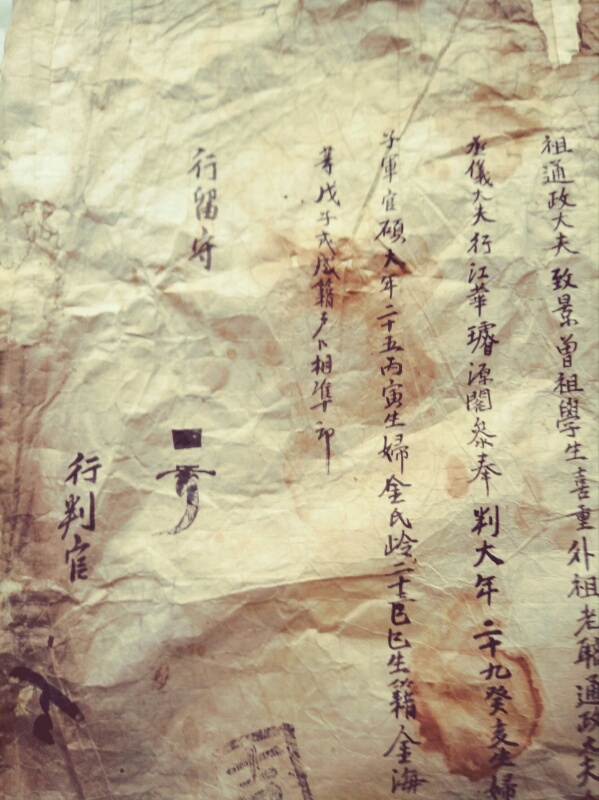 祖通政大夫致景曾祖學生喜重外祖老職通政大夫
承儀大夫行江華璿源閣叅奉判大年二十九癸亥生婦
子軍官碩大年二十五丙寅生婦金氏齡二十二己巳生籍金海
等戊子式成籍戶口相準印
行留守
行判官